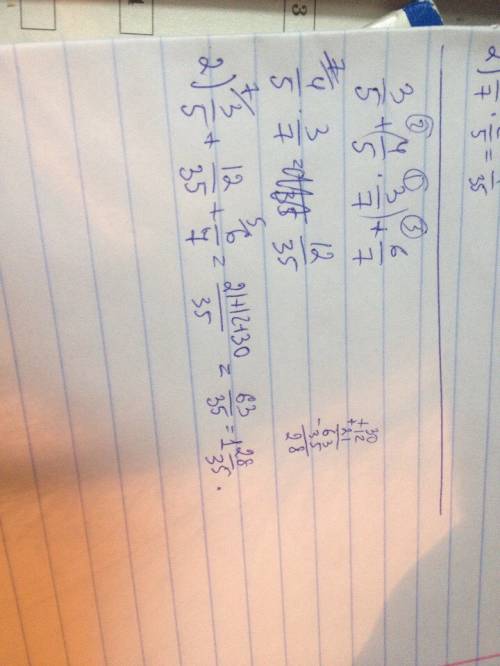 2) /7 · /5 = /35
3/5 + (4/5 · 3/7) + 6/7
② ① ③
4/5 · 3/7 = 12/35
2) 3/5 + 12/35 + 6/7 = 21+12+30/35 = 63/35 = 1 28/35.
7/ 5/
30
+12
+21
63
-35
28
3